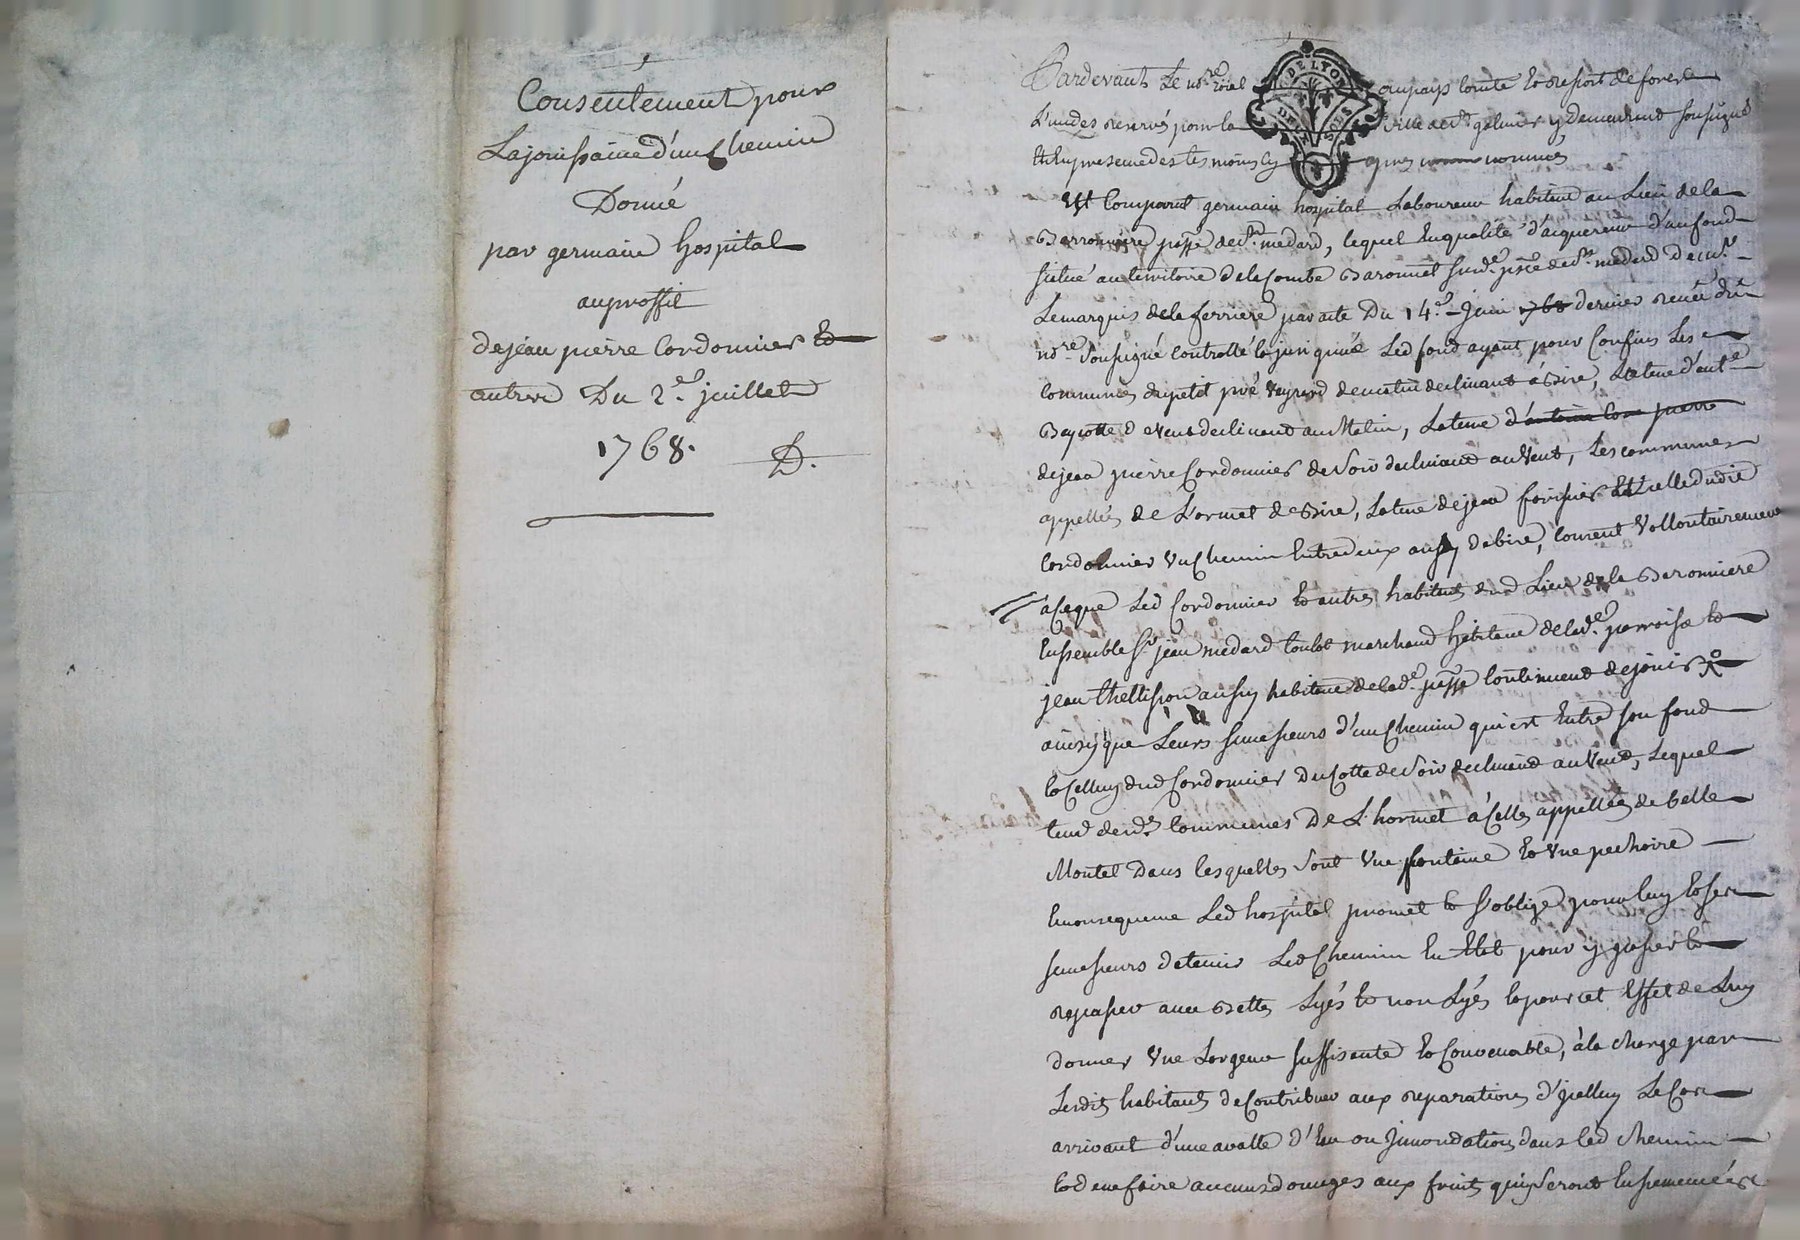 Consentement pour
La jouissance d'un Chemin
Donné
par germain hospital
au proffit
de jean pierre Cordonnier et
autres Du 2.e juillet
1768.
D.
Pardevant Le no.re roial DE LYON au pays Comté et ressort de forest
L'un des reservés pour la ville de St galmier y demeurant soussigné
et En presence des tesmoins cy apres nommés
Est Comparut germain hospital Laboureur habitant au Lieu de la
Baronniere p.sse de St medard, lequel En qualité d'acquereur d'un fond
situé au territoire de la Combe Baronnet sur d.e p.sse de St medard De m.r
Le marquis de la ferriere par acte Du 14.e Juin 1768 dernier receu du
no.re soussigné controllé Led fond ayant pour Confins Les
communes du petit pré de matin declinant à Bize, La terre d'ant.e
de vent declinant au Matin, La terre d'antoine pierre
de jean pierre Cordonnier de Soir declinant au Vent, Les communes
appellées de L'ormet de Bize, La terre de jean forissier Et Celle dudit
Cordonnier un Chemin Entredeux aussy de bize, Consent Vollontairement
à Ce que Led Cordonnier et autres habitants dud Lieu de la Baronniere
Ensemble Sr jean medard marchand habitant de lad.e parroisse et
jean thellisson aussy habitant de lad.e p.sse Continuent de jouir
ainsy que Leurs successeurs d'un Chemin qui est Entre son fond
et Celluy dud Cordonnier Du Cotté de Soir declinant au Vent, Lequel
tend desd.s Communes De L'hormet à Celles appellées de belle
Montel Dans lesquelles Sont Une fontaine et Une pechoire
En consequence Led hospital promet et s'oblige pour luy et ses
successeurs de tenir Led Chemin En Etat pour y passer et
repasser avec Bettes Lyés et non Lyés et pour cet Effet de Luy
donner Une Largeur suffisante et Convenable, à la Charge par
Lesdits habitants de Contribuer aux reparations d'jcelluy Le Cas
arrivant d'une avalle d'Eau ou Jnnondation dans led chemin
et de ne faire aucuns domages aux fruits qui Seront Ensemencés